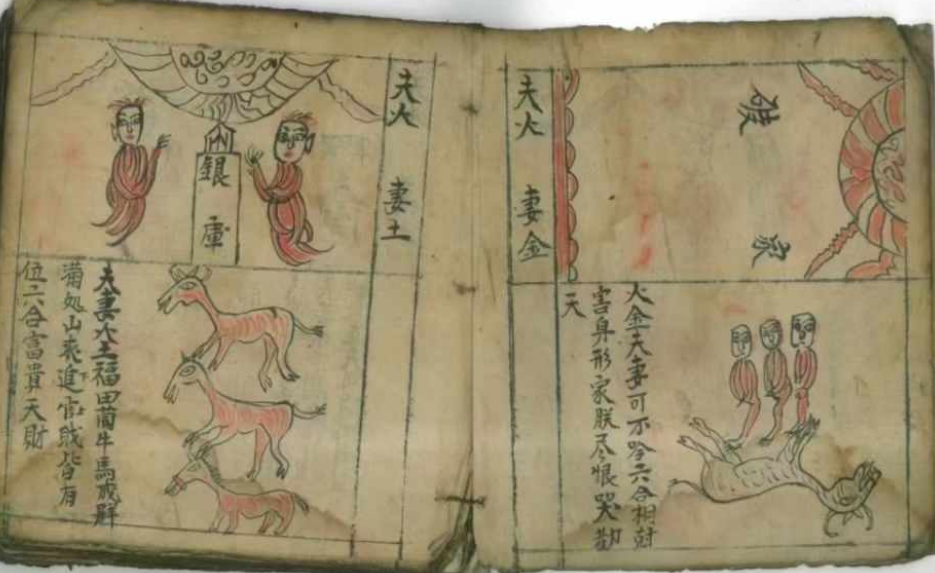 破家
夫火 妻金
火金夫妻可不六合相
害身形家尽恨哭勸
天
夫火 妻土
銀庫
夫妻火土福田牛馬成群
滿処山庄進官皆有
位六合富貴天財